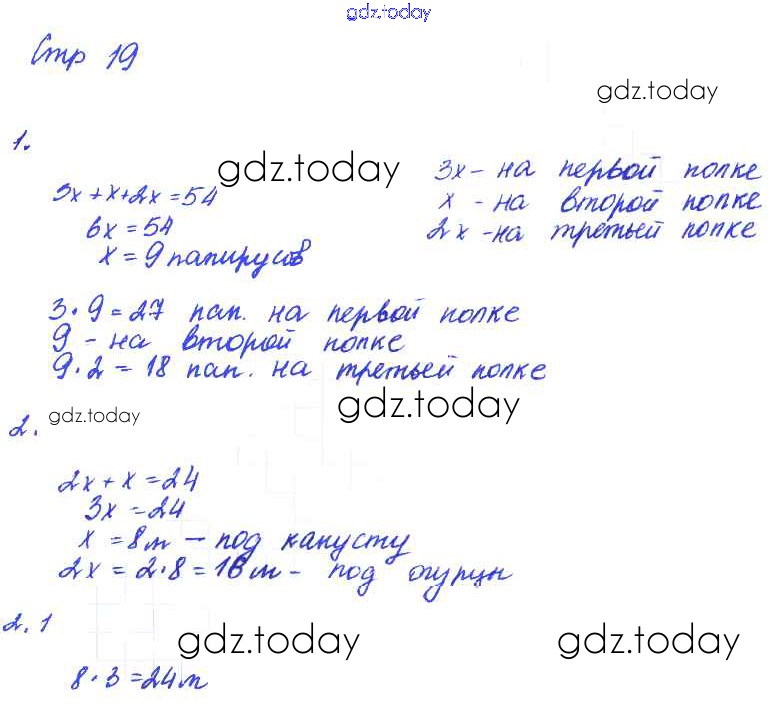 gdz.today
Стр 19
gdz.today
1.
gdz.today
3x + x + 2x = 54
3x - на первой полке
6x = 54
x - на второй полке
x = 9 папирусов
2x - на третьей полке
3 · 9 = 27 пап. на первой полке
9 - на второй полке
9 · 2 = 18 пап. на третьей полке
gdz.today
gdz.today
2.
2x + x = 24
3x = 24
x = 8м - под капусту
2x = 2·8 = 16м - под огурцы
2.1
gdz.today
gdz.today
8 · 3 = 24м